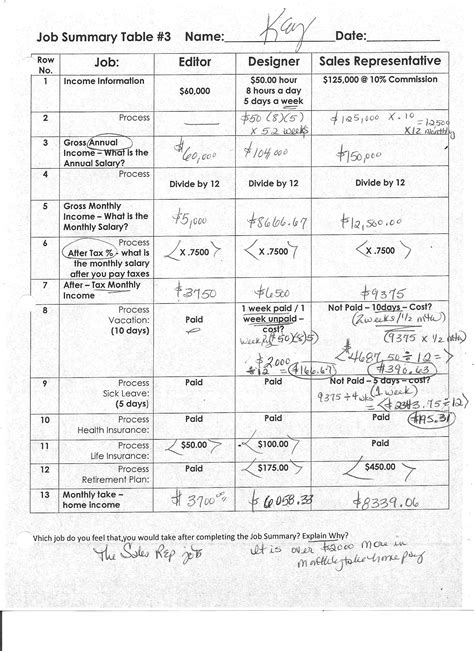 Job Summary Table #3 Name: Key Date:
Row No. Job: Editor Designer Sales Representative
1 Income Information $60,000 $50.00 hour 8 hours a day 5 days a week $125,000 @ 10% Commission
2 Process $50 (8)(5) x 52 weeks $125,000 x .10 = 12500 x12 monthly
3 Gross Annual Income – What is the Annual Salary? $60,000 $104,000 $150,000
4 Process Divide by 12 Divide by 12 Divide by 12
5 Gross Monthly Income – What is the Monthly Salary? $5,000 $8666.67 $12,500.00
6 Process After Tax % - what is the monthly salary after you pay taxes X .7500 X .7500 X .7500
7 After – Tax Monthly Income $3750 $6500 $9375
8 Process Vacation: (10 days) Paid 1 week paid / 1 week unpaid – cost? ($50)(8)(5) $2000 ÷12 = $166.67 Not Paid – 10days – Cost? (2 weeks/½ mth) (9375 x ½ mth) $4687.50 ÷ 12 = $390.63
9 Process Sick Leave: (5 days) Paid Paid Not Paid – 5 days – cost? (1 week) 9375 ÷ 4 wks = $2343.75 ÷ 12 $195.31
10 Process Health Insurance: Paid Paid Paid
11 Process Life Insurance: $50.00 $100.00 Paid
12 Process Retirement Plan: Paid $175.00 $450.00
13 Monthly take – home income $3700 $6058.33 $8339.06
Which job do you feel that,you would take after completing the Job Summary? Explain Why?
The Sales Rep job It is over $2000 more in
monthly take home pay